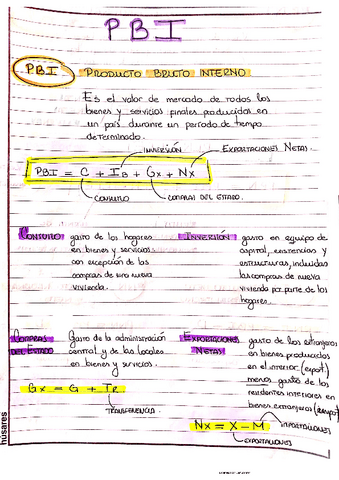 PBI
PBI PRODUCTO BRUTO INTERNO
Es el valor de mercado de todos los
bienes y servicios finales producidos en
un país durante un período de tiempo
determinado.
INVERSIÓN EXPORTACIONES NETAS.
PBI = C + IB + Gx + Nx
CONSUMO COMPRAS DEL ESTADO.
CONSUMO gasto de los hogares
en bienes y servicios
con excepción de las
compras de una nueva
vivienda.
INVERSIÓN gasto en equipo de
capital, existencias y
estructuras, incluidas
las compras de nueva
vivienda por parte de los
hogares.
COMPRAS DEL ESTADO Gasto de la administración
central y de las locales
en bienes y servicios.
Gx = G + TR
TRANSFERENCIA
EXPORTACIONES NETAS gasto de los extranjeros
en bienes producidos
en el interior (export)
menos gasto de los
residentes interiores en
bienes extranjeros (import)
Nx = X - M IMPORTACIONES
EXPORTACIONES
húsares